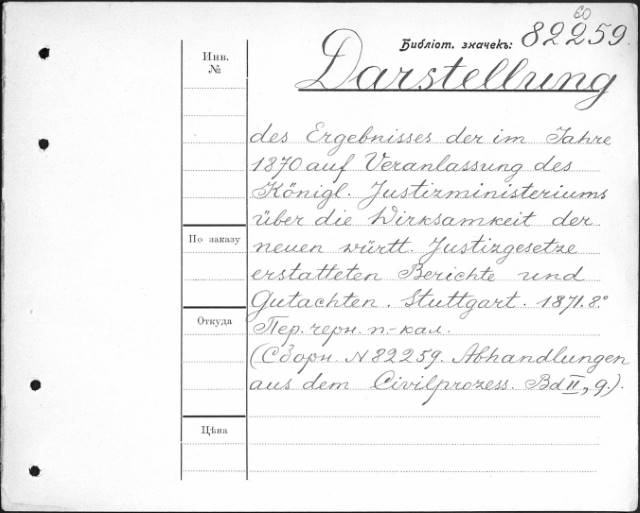 60
Библіот. значекъ: 82259.
Инв.
№
Darstellung
des Ergebnisses der im Jahre
1870 auf Veranlassung des
Königl. Justizministeriums
über die Wirksamkeit der
По заказу
neuen württ. Justizgesetze
erstatteten Berichte und
Gutachten. Stuttgart. 1871. 8º
Откуда
Пер. черн. п.-кал.
(Сборн. N 82259. Abhandlungen
aus dem Civilprozess. Bd II, 9.).
Цѣна